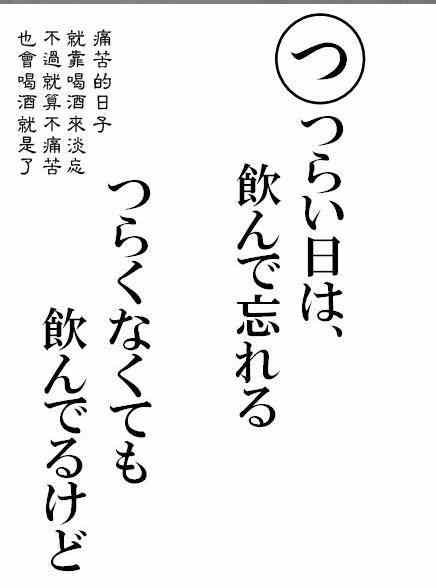 つ
つらい日は、
飲んで忘れる
つらくなくても
飲んでるけど
痛苦的日子
就靠喝酒來淡忘
不過就算不痛苦
也會喝酒就是了